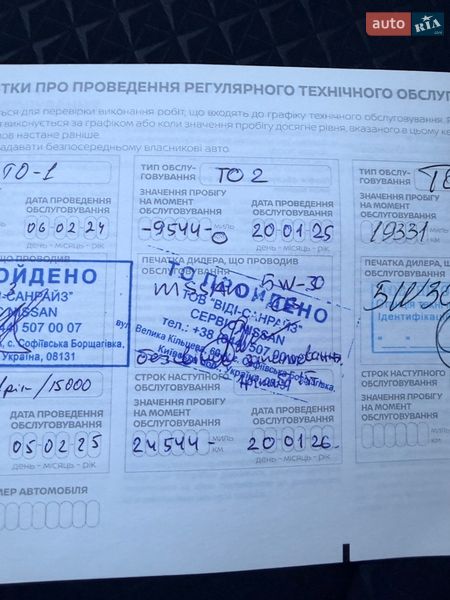 auto RIA
.com
ТКИ ПРО ПРОВЕДЕННЯ РЕГУЛЯРНОГО ТЕХНІЧНОГО ОБСЛУГ
ться для перевірки виконання робіт, що входять до графіку технічного обслуговування.
виконується за графіком або коли значення пробігу досягне рівня, вказаного в цьому
мов настане раніше.
адавати безпосередньому власникові авто.
ТО-1
ДАТА ПРОВЕДЕННЯ
ОБСЛУГОВУВАННЯ
06 02 24
ПРОВОДИВ
ОЙДЕНО
І-САНРАЙЗ"
NISSAN
507 00 07
вул.
, с. Софіївська Борщагівка,
Україна, 08131
/рік/15000
ДАТА ПРОВЕДЕННЯ
ОБСЛУГОВУВАННЯ
05 02 25
день - місяць - рік
МЕР АВТОМОБІЛЯ
ТИП ОБСЛУ-
ГОВУВАННЯ
ТО 2
ЗНАЧЕННЯ ПРОБІГУ
НА МОМЕНТ
ОБСЛУГОВУВАННЯ
ДАТА ПРОВЕДЕННЯ
ОБСЛУГОВУВАННЯ
-9544-
МИЛЬ
20 01 25
ПЕЧАТКА ДИЛЕРА, ЩО ПРОВОДИВ
ОБСЛУГОВУВАННЯ
5W-30
ТО ПРОЙДЕНО
ТОВ "ВІДІ-САНРАЙЗ"
СЕРВІС NISSAN
тел.: +38 (044) 507
Велика Кільцева, 60
Софіївська Борщагівка,
СТРОК НАСТУПНОГО
ЗНАЧЕННЯ ПРОБІГУ
НА МОМЕНТ
ОБСЛУГОВУВАННЯ
ДАТА ПРОВЕДЕННЯ
ОБСЛУГОВУВАННЯ
24544-
МИЛЬ
КМ
20 01 26
день - місяць - рік
ТИП ОБСЛУ-
ГОВУВАННЯ
ЗНАЧЕННЯ ПРОБІГУ
НА МОМЕНТ
ОБСЛУГОВУВАННЯ
19331
МИЛЬ
КМ
ПЕЧАТКА ДИЛЕРА,
ОБСЛУГОВУВАННЯ
5W30
Ідентифікац
СТРОК НАСТУПН
ОБСЛУГОВУВАНН
ЗНАЧЕННЯ ПРОБІГУ
НА МОМЕНТ
ОБСЛУГОВУВАННЯ
МИЛЬ
КМ